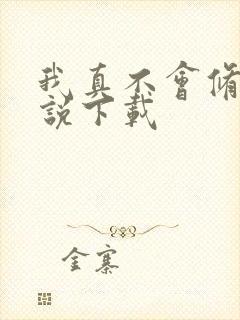 我真不會脩
說下載
金寨